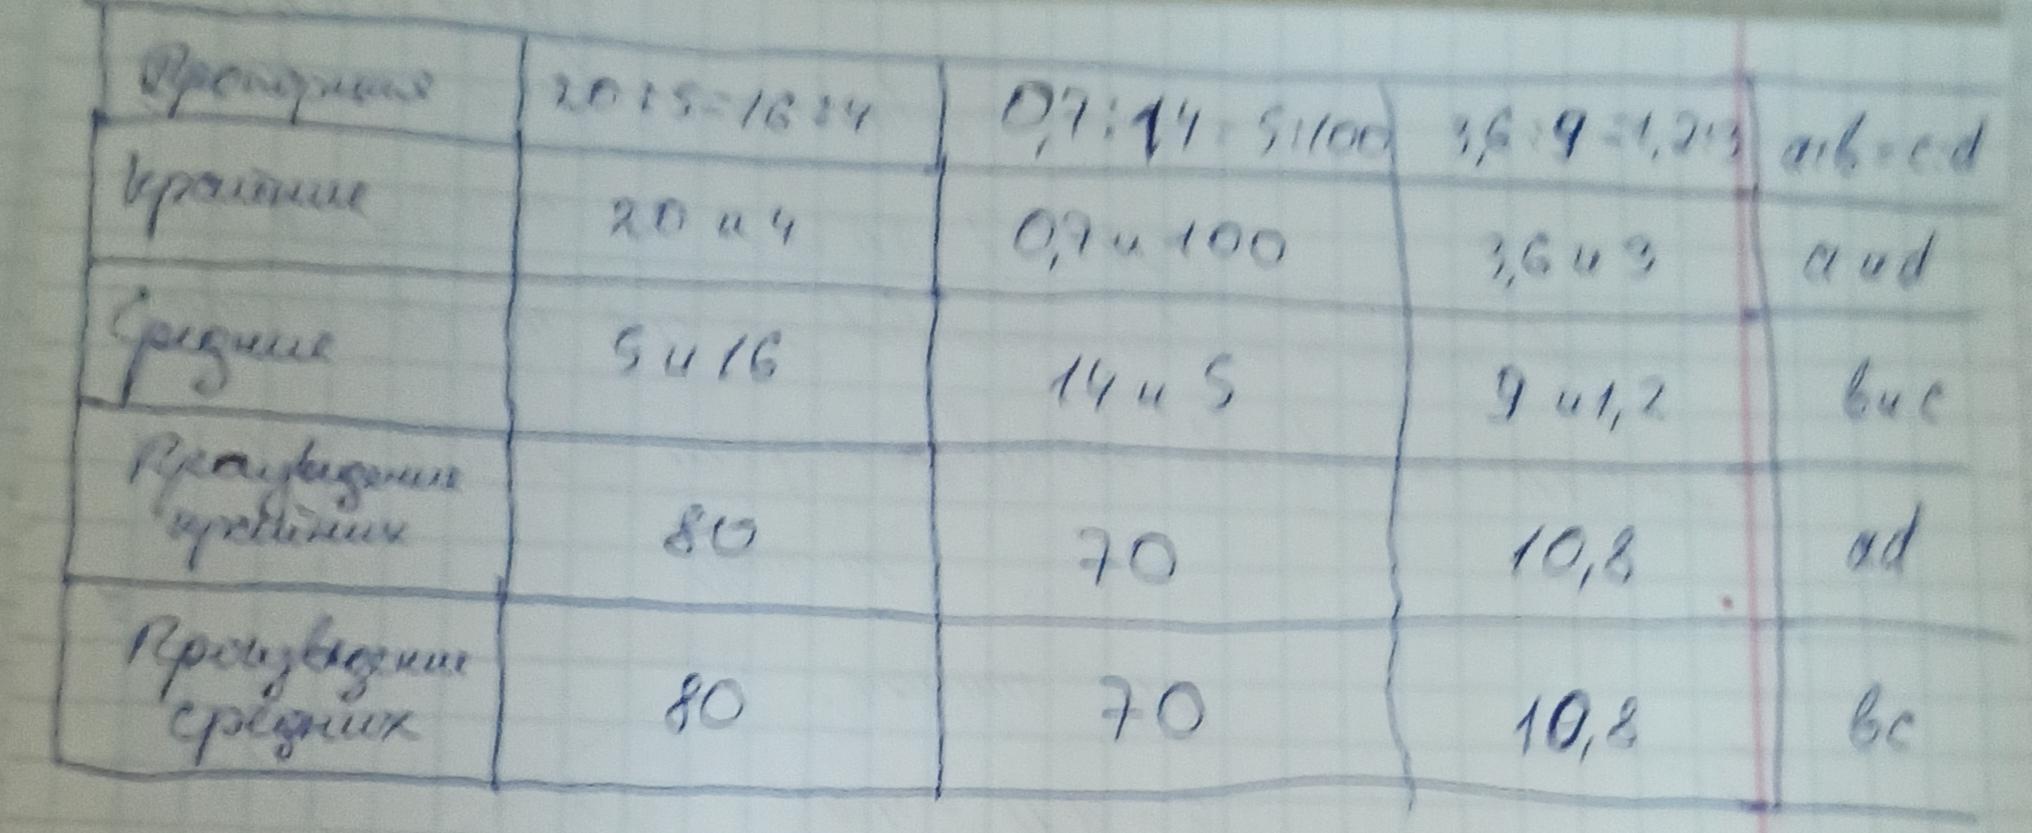 Пропорция 20:5=16:4 0,7:14=5:100 3,6:9=1,2:3 a:b=c:d
Крайние 20 и 4 0,7 и 100 3,6 и 3 a и d
Средние 5 и 16 14 и 5 9 и 1,2 b и c
Произведение
крайних 80 70 10,8 ad
Произведение
средних 80 70 10,8 bc